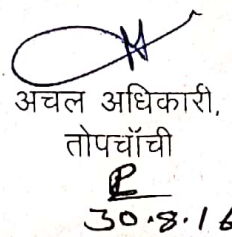 अचल अधिकारी,
तोपचाॅची
30.8.16